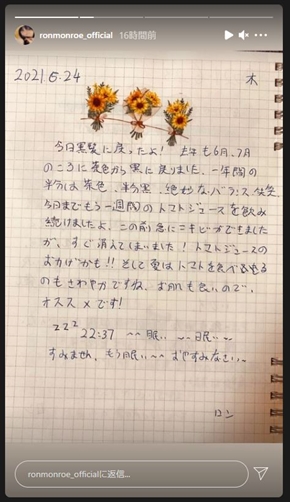 ronmonroe_official 16時間前
2021.6.24 木
今日黒髪に戻ったよ! 去年も6月、7月
のころに茶色から黒に戻りました。一年間の
半分は茶色、半分黒、絶妙なバランス笑笑
今日までもう一週間のトマトジュースを飲み
続けましたよ、この前急にニキビができました
が、すぐ消えてしまいました!トマトジュースの
おかげかも!!そして夏はトマトを食べる
のもさわやかですね、お肌も良いので、
オススメです!
zzz 22:37 ~~眠い ~~眠い~
すみません、もう眠い~~おやすみなさい~
ロン
ronmonroe_officialに返信...